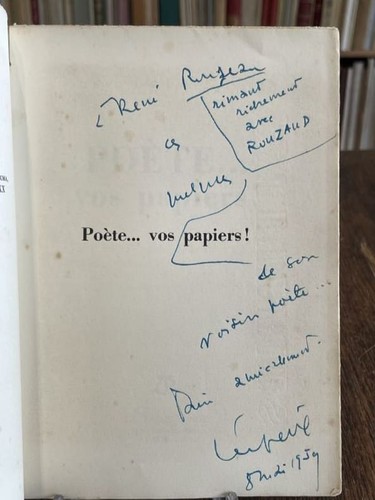 à René
rimant
richement
avec
ROUZAUD
ces
quelques
Poète... vos papiers !
de son
voisin poète...
Bien amicalement.
Léo Ferré
1959